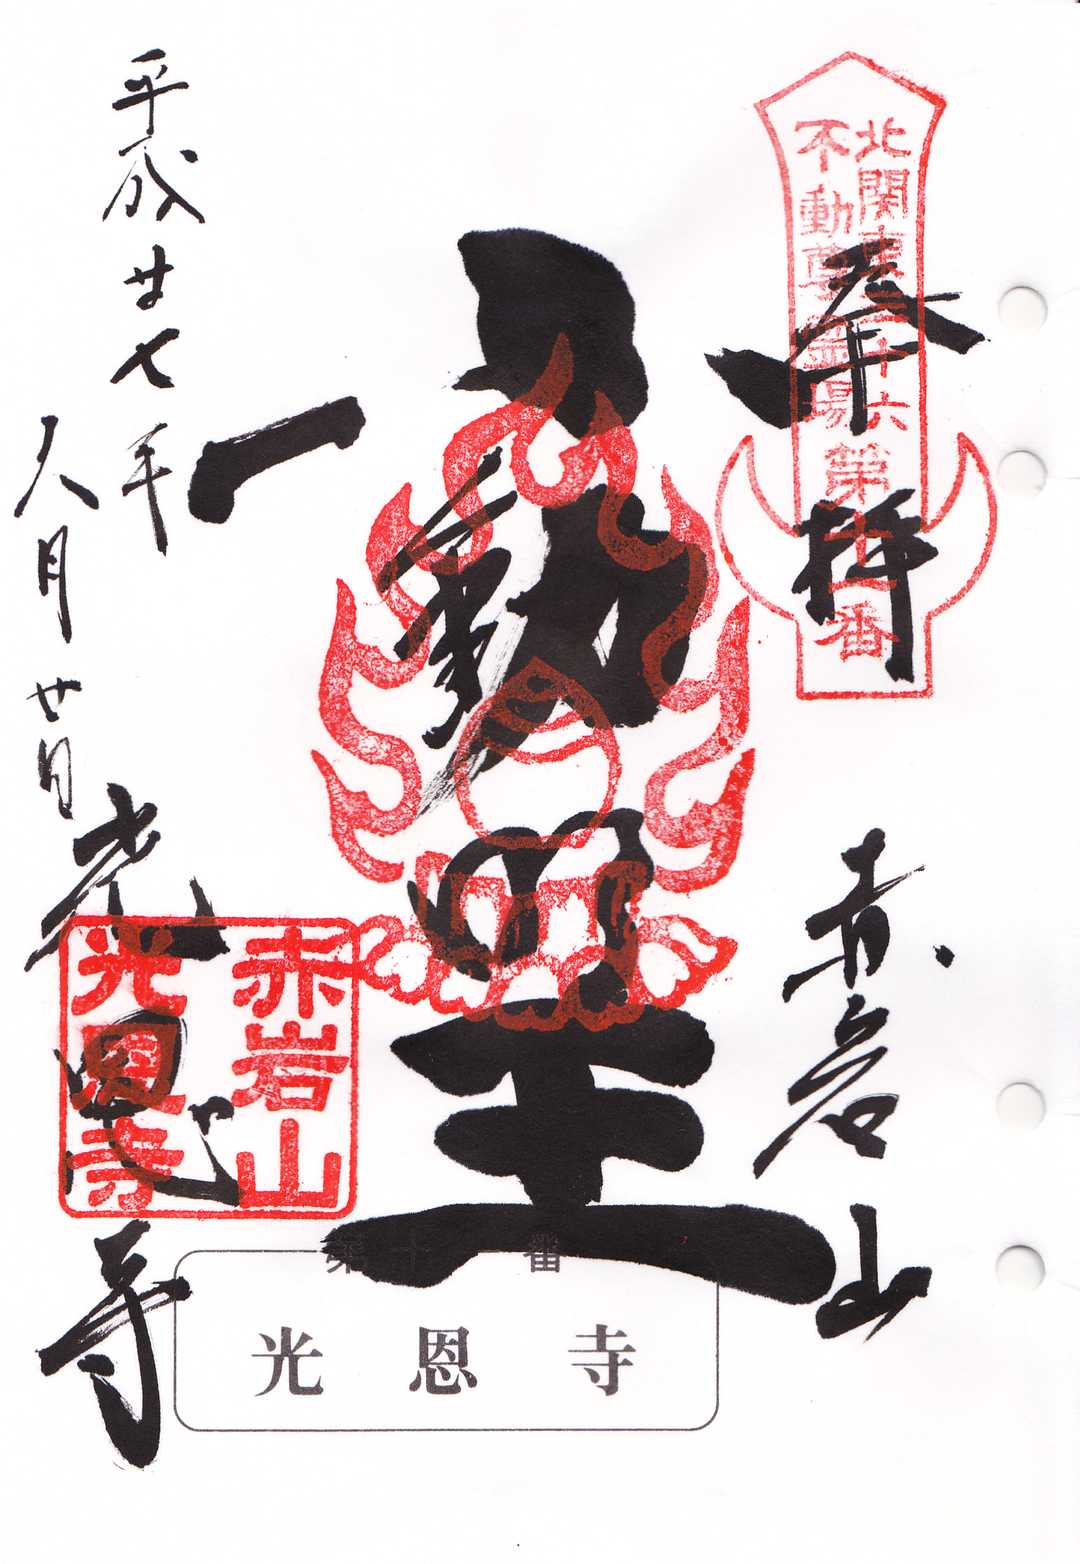 奉拝
北関東三十六
不動尊霊場
第十番
赤岩山
動明王
平成廿七年
月廿日
光恩寺
赤岩山
光恩寺
第十番
光恩寺